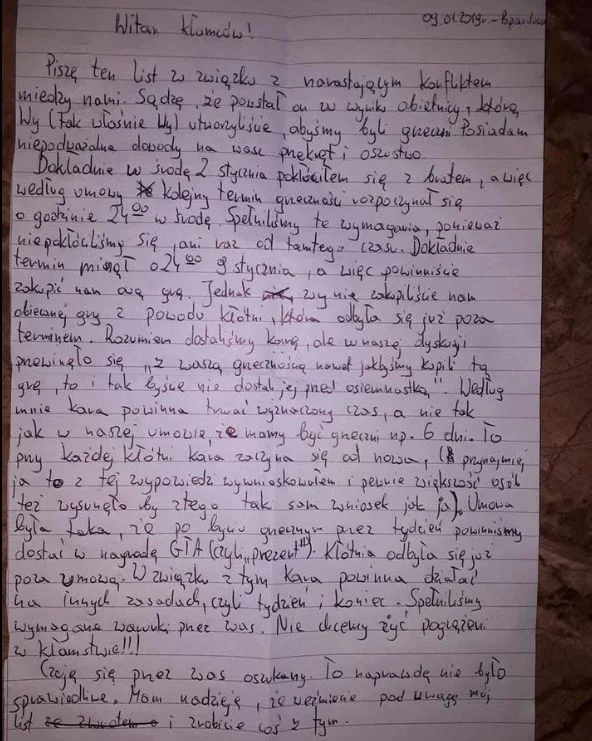 09.01.2019r -
Witam kłamców!
Piszę ten list w związku z narastającym konfliktem
między nami. Sądzę, że powstał on w wyniku obietnicy, którą
Wy (tak właśnie Wy) utworzyliście, abyśmy byli grzeczni. Posiadam
niepodważalne dowody na wasz przekręt i oszustwo.
Dokładnie w środę 2 stycznia pokłóciłem się z bratem, a więc
według umowy kolejny termin grzeczności rozpoczynał się
o godzinie 24:00 w środę. Spełniliśmy te wymagania, ponieważ
niepokłóciliśmy się, ani raz od tamtego czasu. Dokładnie
termin minął o 24:00 9 stycznia, a więc powinniście
zakupić nam ową grę. Jednak wy nie zakupiliście nam
obiecanej gry z powodu kłótni, która odbyła się już poza
terminem. Rozumiem dostaliśmy karę, ale w naszej dyskusji
przewinęło się "z waszą grzecznością nawet jakbyśmy kupili tą
grę, to i tak byście nie dostali jej przed osiemnastką". Według
mnie kara powinna trwać wyznaczony czas, a nie tak
jak w naszej umowie, że mamy być grzeczni np. 6 dni. To
przy każdej kłótni kara zaczyna się od nowa, (przynajmniej
ja to z tej wypowiedzi wywnioskowałem i pewnie większość osób
też wysunęło by z tego tak sam wniosek jak ja). Umowa
była taka, że po byciu grzecznym przez tydzień powinniśmy
dostać w nagrodę GTA (czyli "prezent"). Kłótnia odbyła się już
poza umową. W związku z tym kara powinna działać
na innych zasadach, czyli tydzień i koniec. Spełniliśmy
wymagane warunki przez was. Nie chcemy żyć pogrążeni
w kłamstwie!!!
Czuję się przez was oszukany. To naprawdę nie było
sprawiedliwe. Mam nadzieję, że weźmiecie pod uwagę mój
list i zrobicie coś z tym.